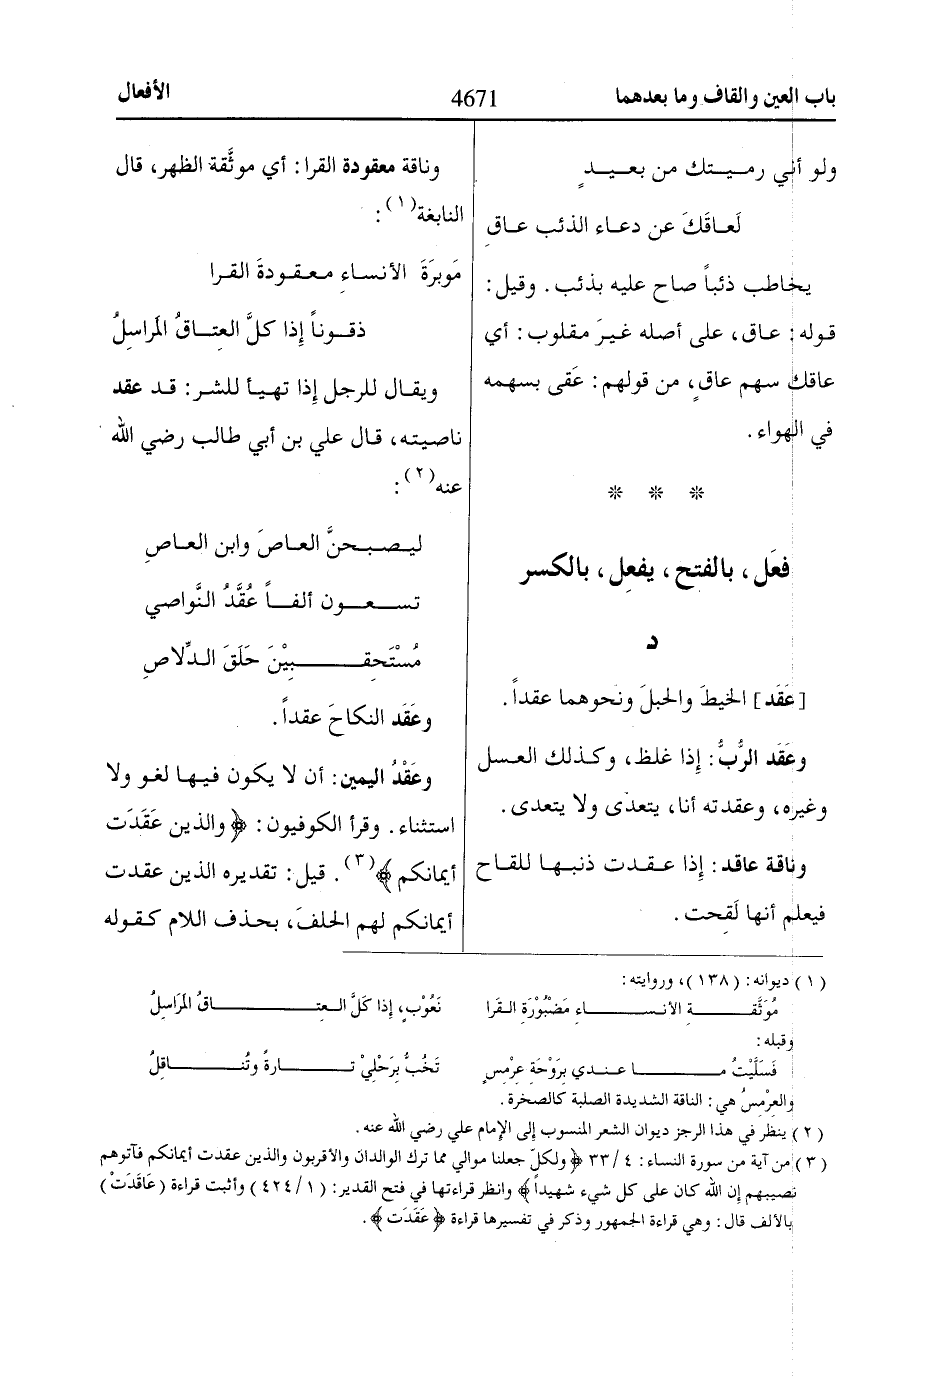 باب العين والقاف وما بعدهما
4671
الأفعال
ولو أني رميتك من بعيدٍ
لَعاقَكَ عن دعاء الذئب عاقِ
يخاطب ذئباً صاح عليه بذئب. وقيل:
قوله: عاق، على أصله غيرَ مقلوب: أي
عاقك سهم عاقٍ، من قولهم: عَقى بسهمه
في الهواء.
* * *
فعَل، بالفتح، يفعِل، بالكسر
د
[عَقَد] الخيطَ والحبلَ ونحوهما عقداً.
وعَقَد الرُّبُّ: إذا غلظ، وكذلك العسل
وغيره، وعقدته أنا، يتعدّى ولا يتعدى.
وناقة عاقد: إذا عقدت ذنبها للقاح
فيعلم أنها لَقِحت.
وناقة معقودة القرا: أي موثَّقة الظهر، قال
النابغة(١):
مَوبَرَةَ الأنساءِ معقودةَ القرا
ذقوناً إذا كلَّ العتاقُ المَراسِلُ
ويقال للرجل إذا تهيأ للشر: قد عقد
ناصيته، قال علي بن أبي طالب رضي الله
عنه(٢):
ليصبحنَّ العاصَ وابن العاصِ
تسعون ألفاً عُقَّدُ النَّواصي
مُسْتَحقِبيْنَ حَلَقَ الدِّلاصِ
وعَقَد النكاحَ عقداً.
وعَقْدُ اليمين: أن لا يكون فيها لغو ولا
استثناء. وقرأ الكوفيون: ﴿والذين عَقَدَت
أيمانكم﴾(٣). قيل: تقديره الذين عقدت
أيمانكم لهم الحلفَ، بحذف اللام كقوله
(١) ديوانه: (١٣٨)، وروايته:
مُوَثَّقةِ الأنساءِ مَضْبُوْرَةِ القَرا نَعُوْبٍ، إذا كَلَّ العتاقُ المَرَاسِلُ
وقبله:
فَسَلَّيْتُ ما عندي بِرَوْحَةِ عِرْمِسٍ تَخُبُّ بِرَحْلِيْ تارةً وتُناقِلُ
والعِرْمِسُ هي: الناقة الشديدة الصلبة كالصخرة.
(٢) ينظر في هذا الرجز ديوان الشعر المنسوب إلى الإمام علي رضي الله عنه.
(٣) من آية من سورة النساء: ٤/ ٣٣ ﴿ولكلٍ جعلنا موالي مما ترك الوالدان والأقربون والذين عقدت أيمانكم فآتوهم
نصيبهم إن الله كان على كل شيء شهيداً﴾ وانظر قراءتها في فتح القدير: (١/ ٤٢٤) وأثبت قراءة (عَاقَدَتْ)
بالألف قال: وهي قراءة الجمهور وذكر في تفسيرها قراءة ﴿عَقَدَت﴾.